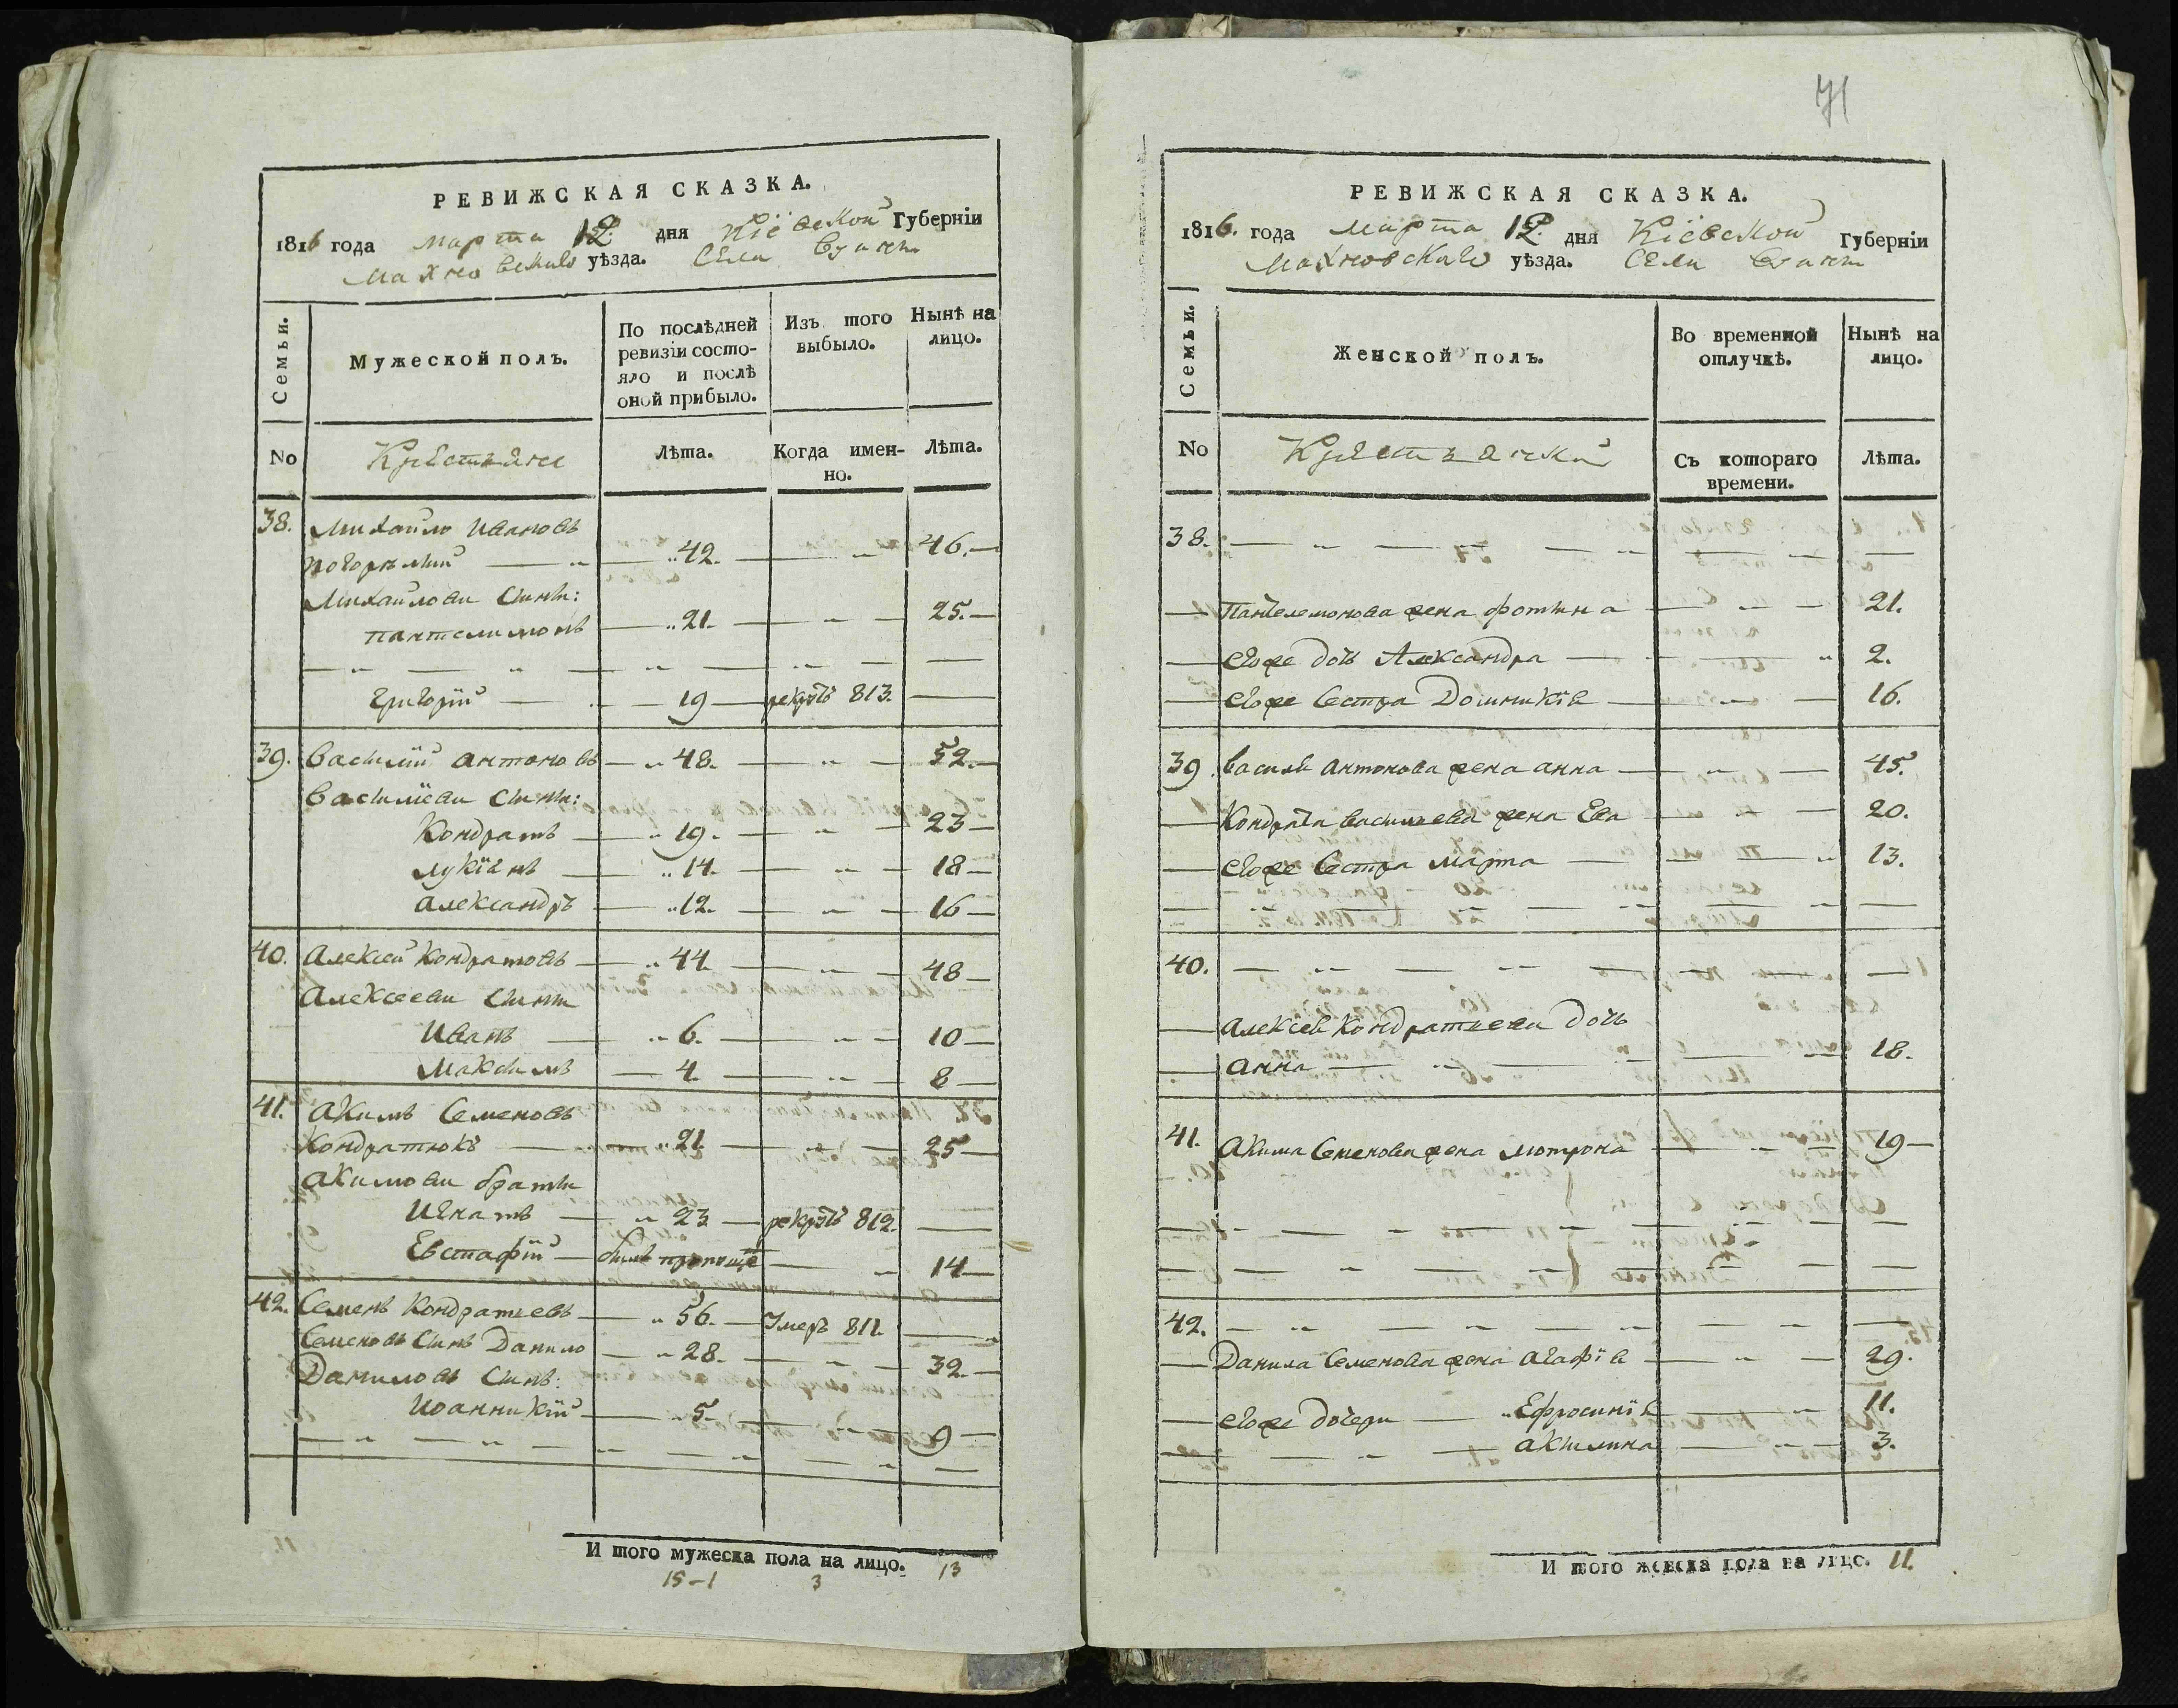 РЕВИЖСКАЯ СКАЗКА.
1816 года марта 12. дня Кіевской Губерніи
Махновскаго уѣзда. Села
Семьи.
Мужеской полъ.
По послѣдней ревизіи состо-
яло и послѣ
оной прибыло.
Изъ того
выбыло.
Нынѣ на
лицо.
No
Крестьяне
Лѣта.
Когда имен-
но.
Лѣта.
38. Михайло Ивановъ
Погорѣлый — 42. — 46.
Михайловы сыны:
Пантелимонъ — 21. — 25.
Григорій — 19 — рекрутъ 813.
39. Василій Антоновъ — 48. — 52.
Василіевы сыны:
Кондратъ — 19. — 23
Лукіянъ — 14. — 18
Александръ — 12. — 16
40. Алексей Кондратовъ — 44. — 48
Алексеевы сыны
Иванъ — 6. — 10
Максимъ — 4. — 8
41. Акимъ Семеновъ
Кондратюкъ — 21. — 25
Акимовы браты
Игнатъ — 23 — рекрутъ 812.
Евстафій — былъ — 14
42. Семенъ Кондратьевъ — 56. — Умеръ 811.
Семеновъ сынъ Данило — 28. — 32.
Даниловъ сынъ:
Иоанникій — 5. — 9
И того мужеска пола на лицо. 13
15-1 3
71
РЕВИЖСКАЯ СКАЗКА.
1816. года Марта 12. дня Кіевской Губерніи
Махновскаго уѣзда. Села
Семьи.
Женской полъ.
Во временной
отлучкѣ.
Нынѣ на
лицо.
No
Съ котораго
времени.
Лѣта.
38.
Пантелемонова жена Фотина — 21.
Егоже дочь Александра — 2.
Егоже сестра Доминикія — 16.
39. Василя Антонова жена Анна — 45.
Кондрата Василева жена Ева — 20.
Егоже сестра Марта — 13.
40.
Алексея Кондратьева дочь
Анна — 18.
41. Акима Семенова жена Мотрона — 19
42.
Данила Семенова жена Агафія — 29.
Егоже дочери — Ефросинія — 11.
Акилина — 3.
И того женска пола на лицо. 11.